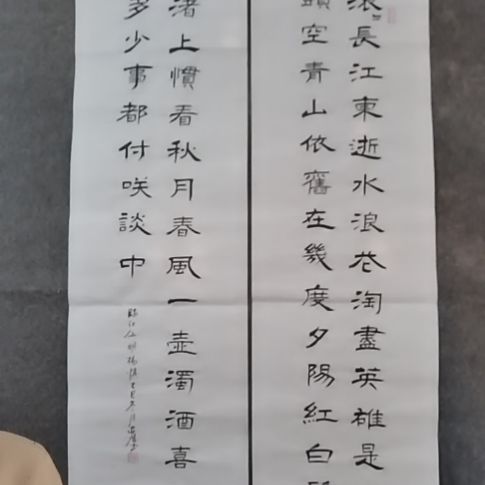 滚〻長江東逝水浪花淘盡英雄是
空青山依舊在幾度夕陽紅白
渚上慣看秋月春風一壺濁酒喜
多少事都付咲談中
臨江仙 明楊慎